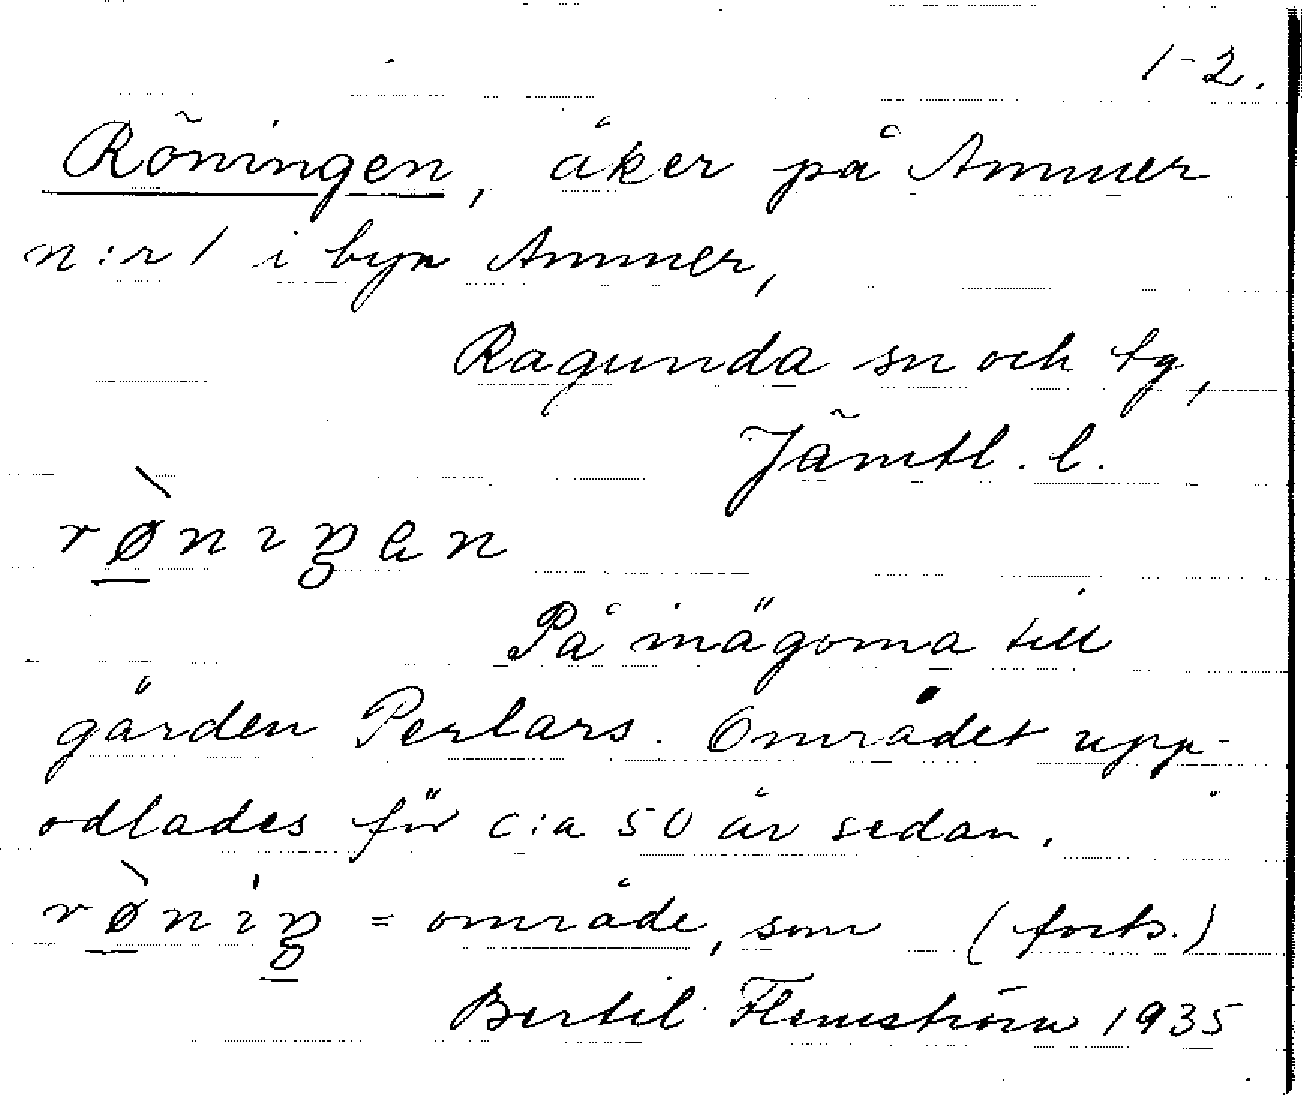 1-2.
Röningen, åker på Ammer
n:r 1 i byn Ammer,
Ragunda sn och tg,
Jämtl. l.
rø̀niŋen
På inägorna till
gården Perlars. Området upp-
odlades för c:a 50 år sedan.
rø̀niŋ = område, som (forts.)
Bertil Flemström 1935